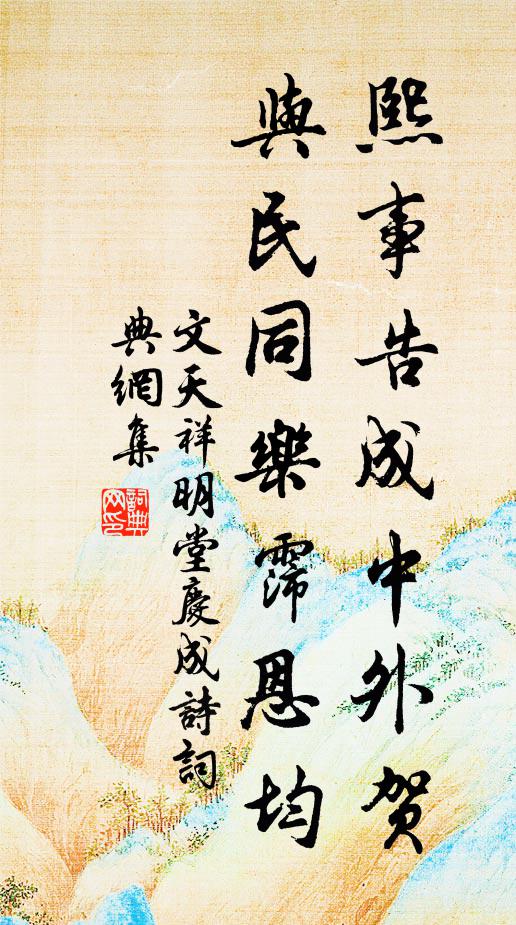 熙事告成中外賀
與民同樂霈恩均
文天祥明堂慶成詩詞
典網集
詞典
网印